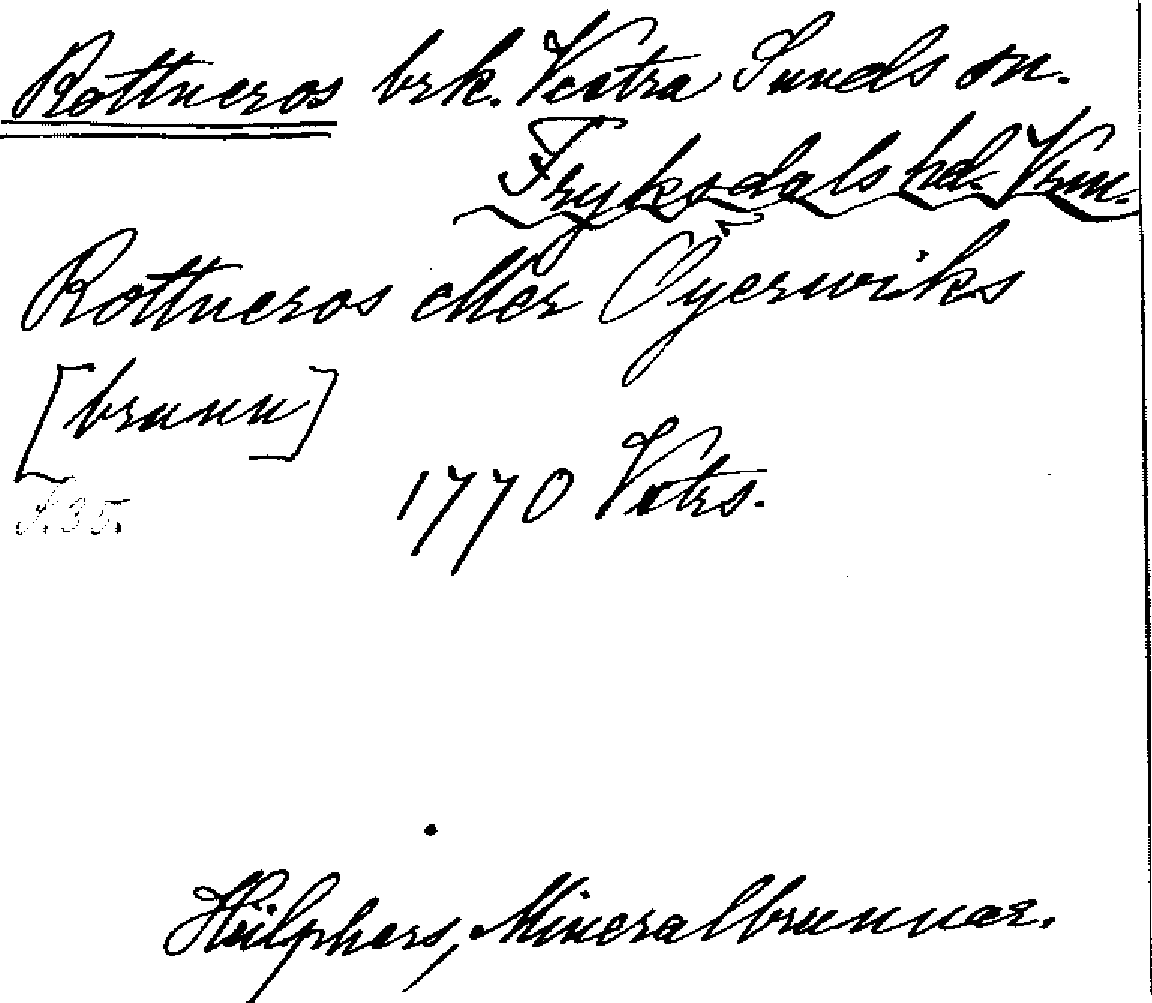 Rottneros brk. Vestra Sunds sn.
Fryksdals hd. Vrm.
Rottneros eller Öyerwiks
[brunn]
S. 35.
1770 Vtrs.
Hülphers, Mineralbrunnar.